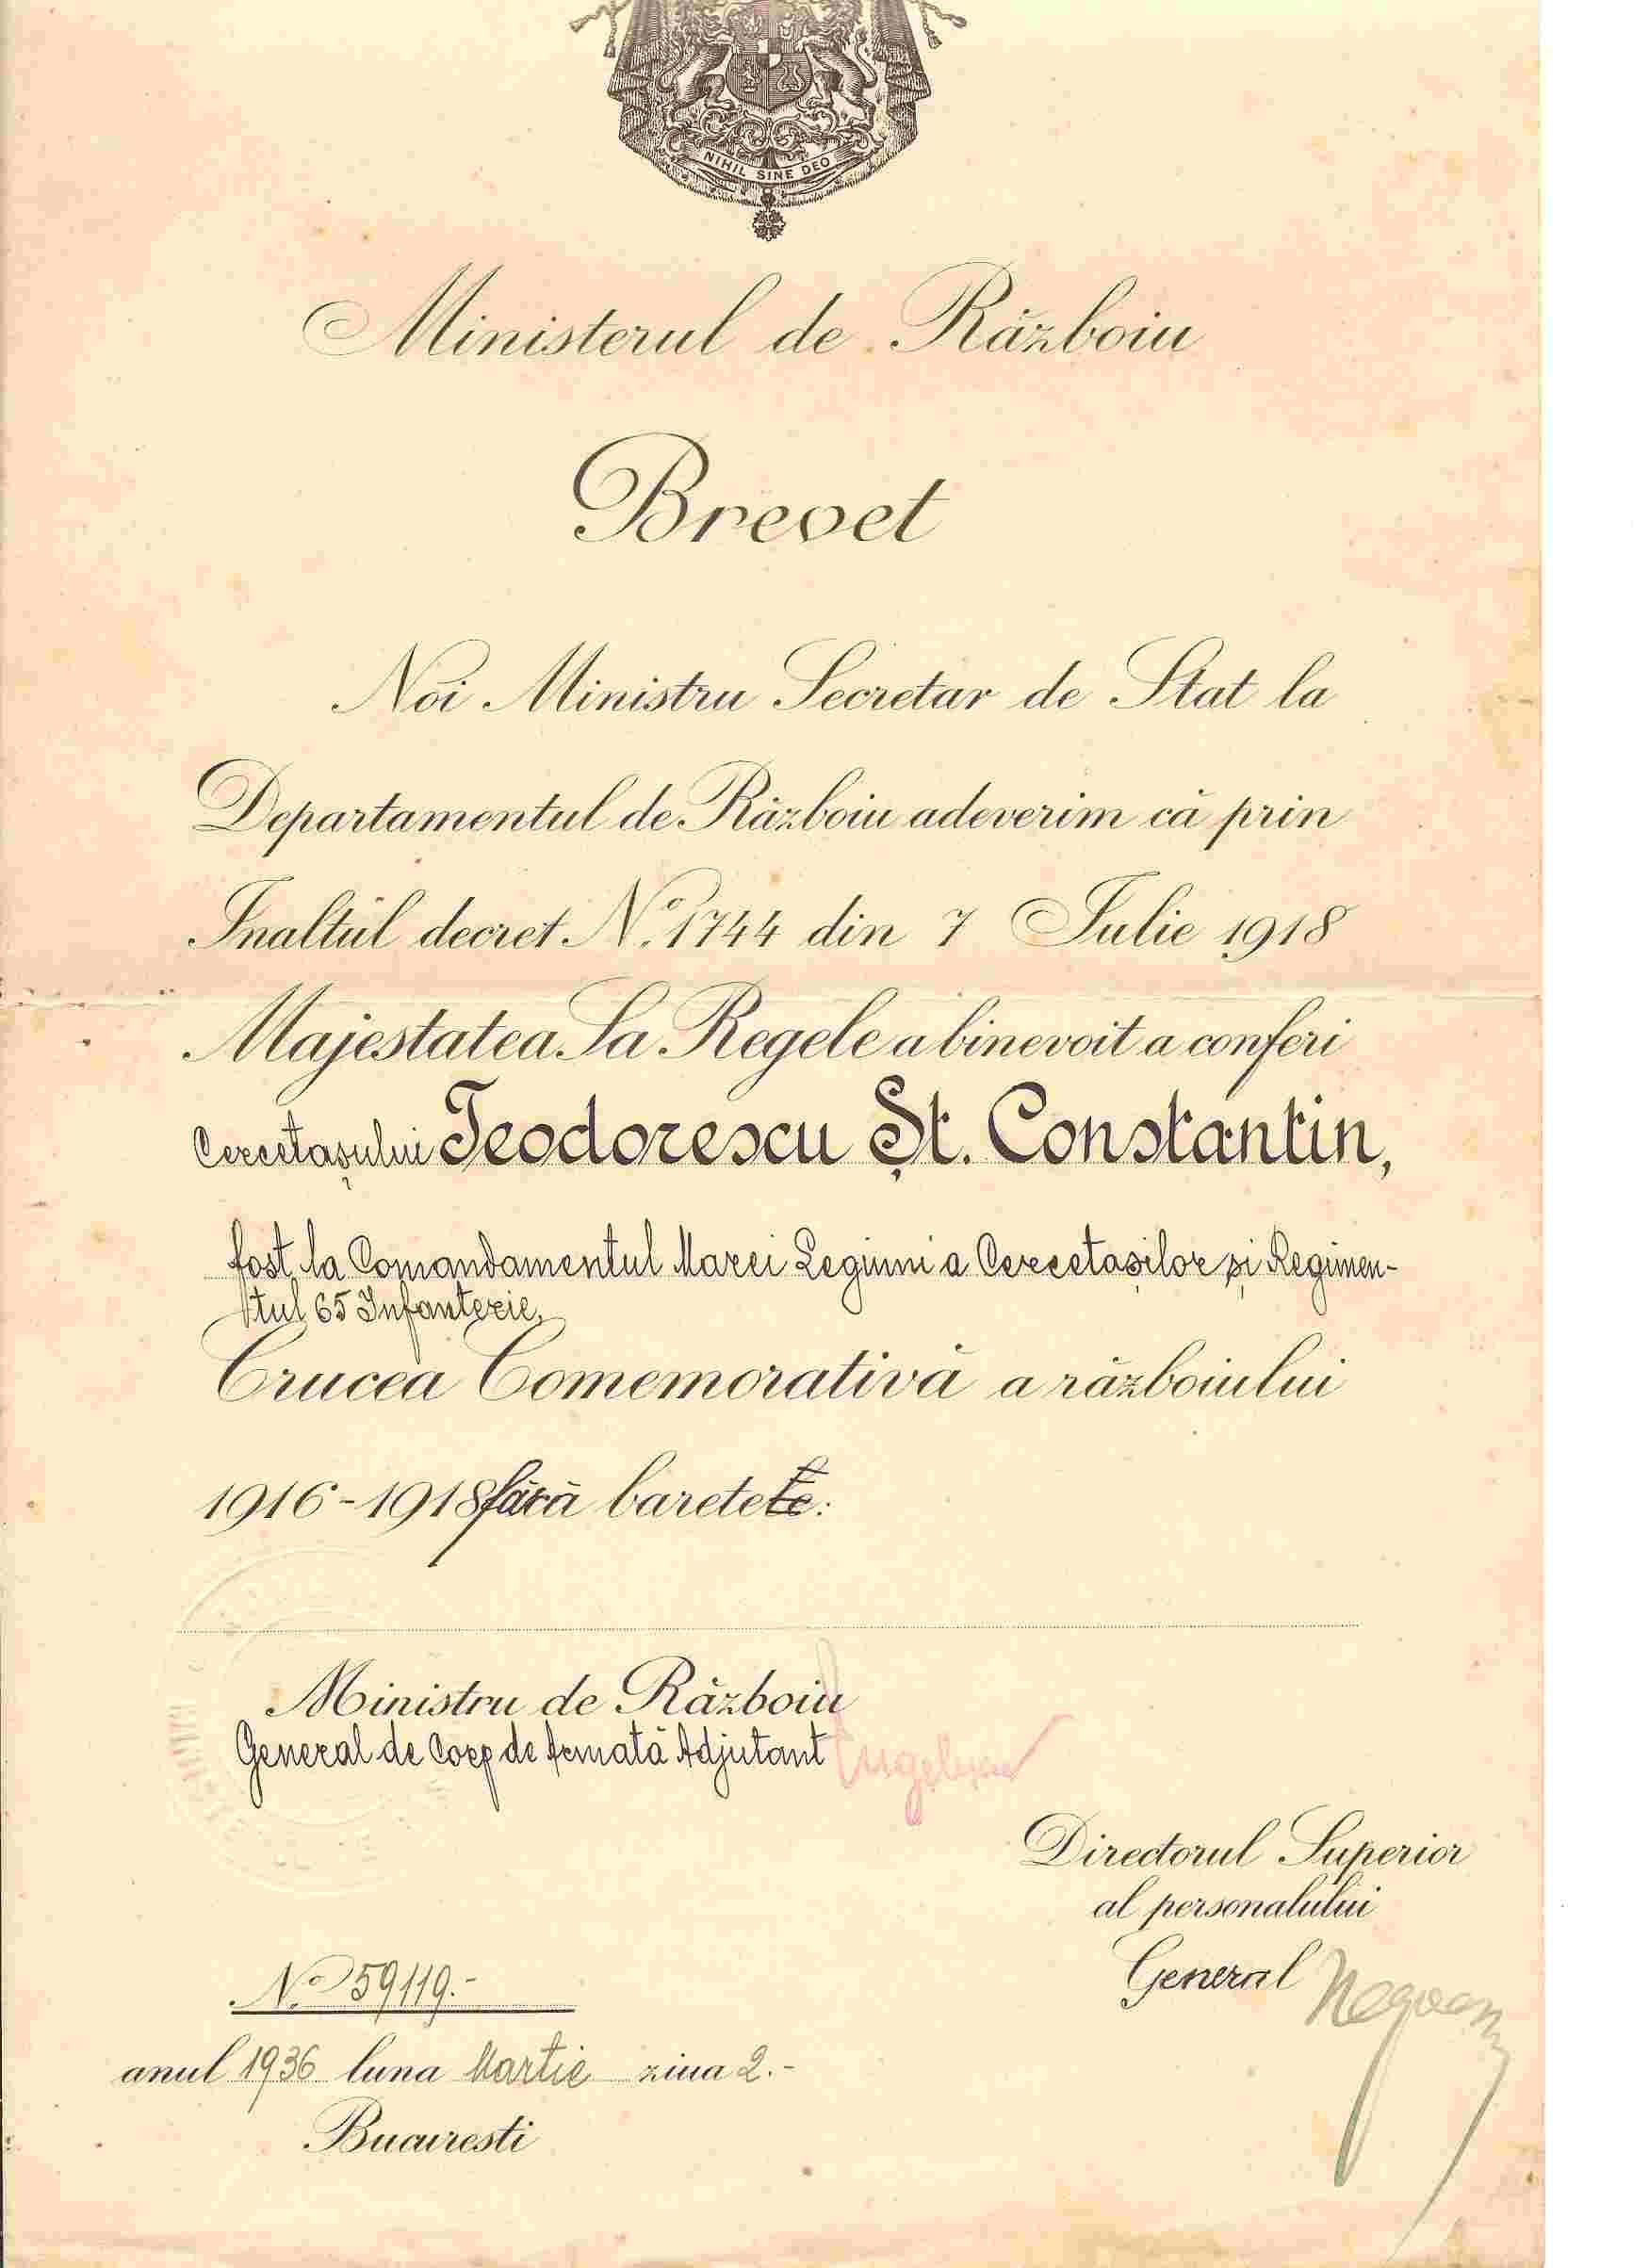 NIHIL SINE DEO
Ministerul de Războiu
Brevet
Noi Ministru Secretar de Stat la
Departamentul de Războiu adeverim că prin
Inaltul decret No. 1744 din 7 Iulie 1918
Majestatea Sa Regele a binevoit a conferi
Cercetașului Teodorescu Șt. Constantin,
fost la Comandamentul Marei Legiuni a Cercetașilor și Regimen-
tul 65 Infanterie,
Crucea Comemorativă a războiului
1916-1918 fără barete:
Ministru de Războiu
General de Corp de Armată Adjutant
Directorul Superior
al personalului
General
No 59119.-
anul 1936 luna Martie ziua 2.-
Bucuresti